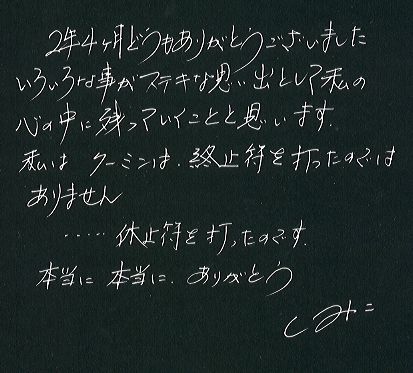 2年4ヶ月どうもありがとうございました
いろいろな事がステキな思い出として私の
心の中に残っていくことと思います.
私は クーミンは、終止符を打ったのでは
ありません
……休止符を打ったのです.
本当に 本当に、ありがとう
くみこ